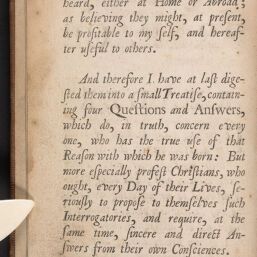 heard, either at Home or Abroad;
as believing they might, at present,
be profitable to my self, and hereaf-
ter useful to others.
And therefore I have at last dige-
sted them into a small Treatise, contain-
ing four Questions and Answers,
which do, in truth, concern every
one, who has the true use of that
Reason with which he was born: But
more especially profest Christians, who
ought, every Day of their Lives, se-
riously to propose to themselves such
Interrogatories, and require, at the
same time, sincere and direct An-
swers from their own Consciences.